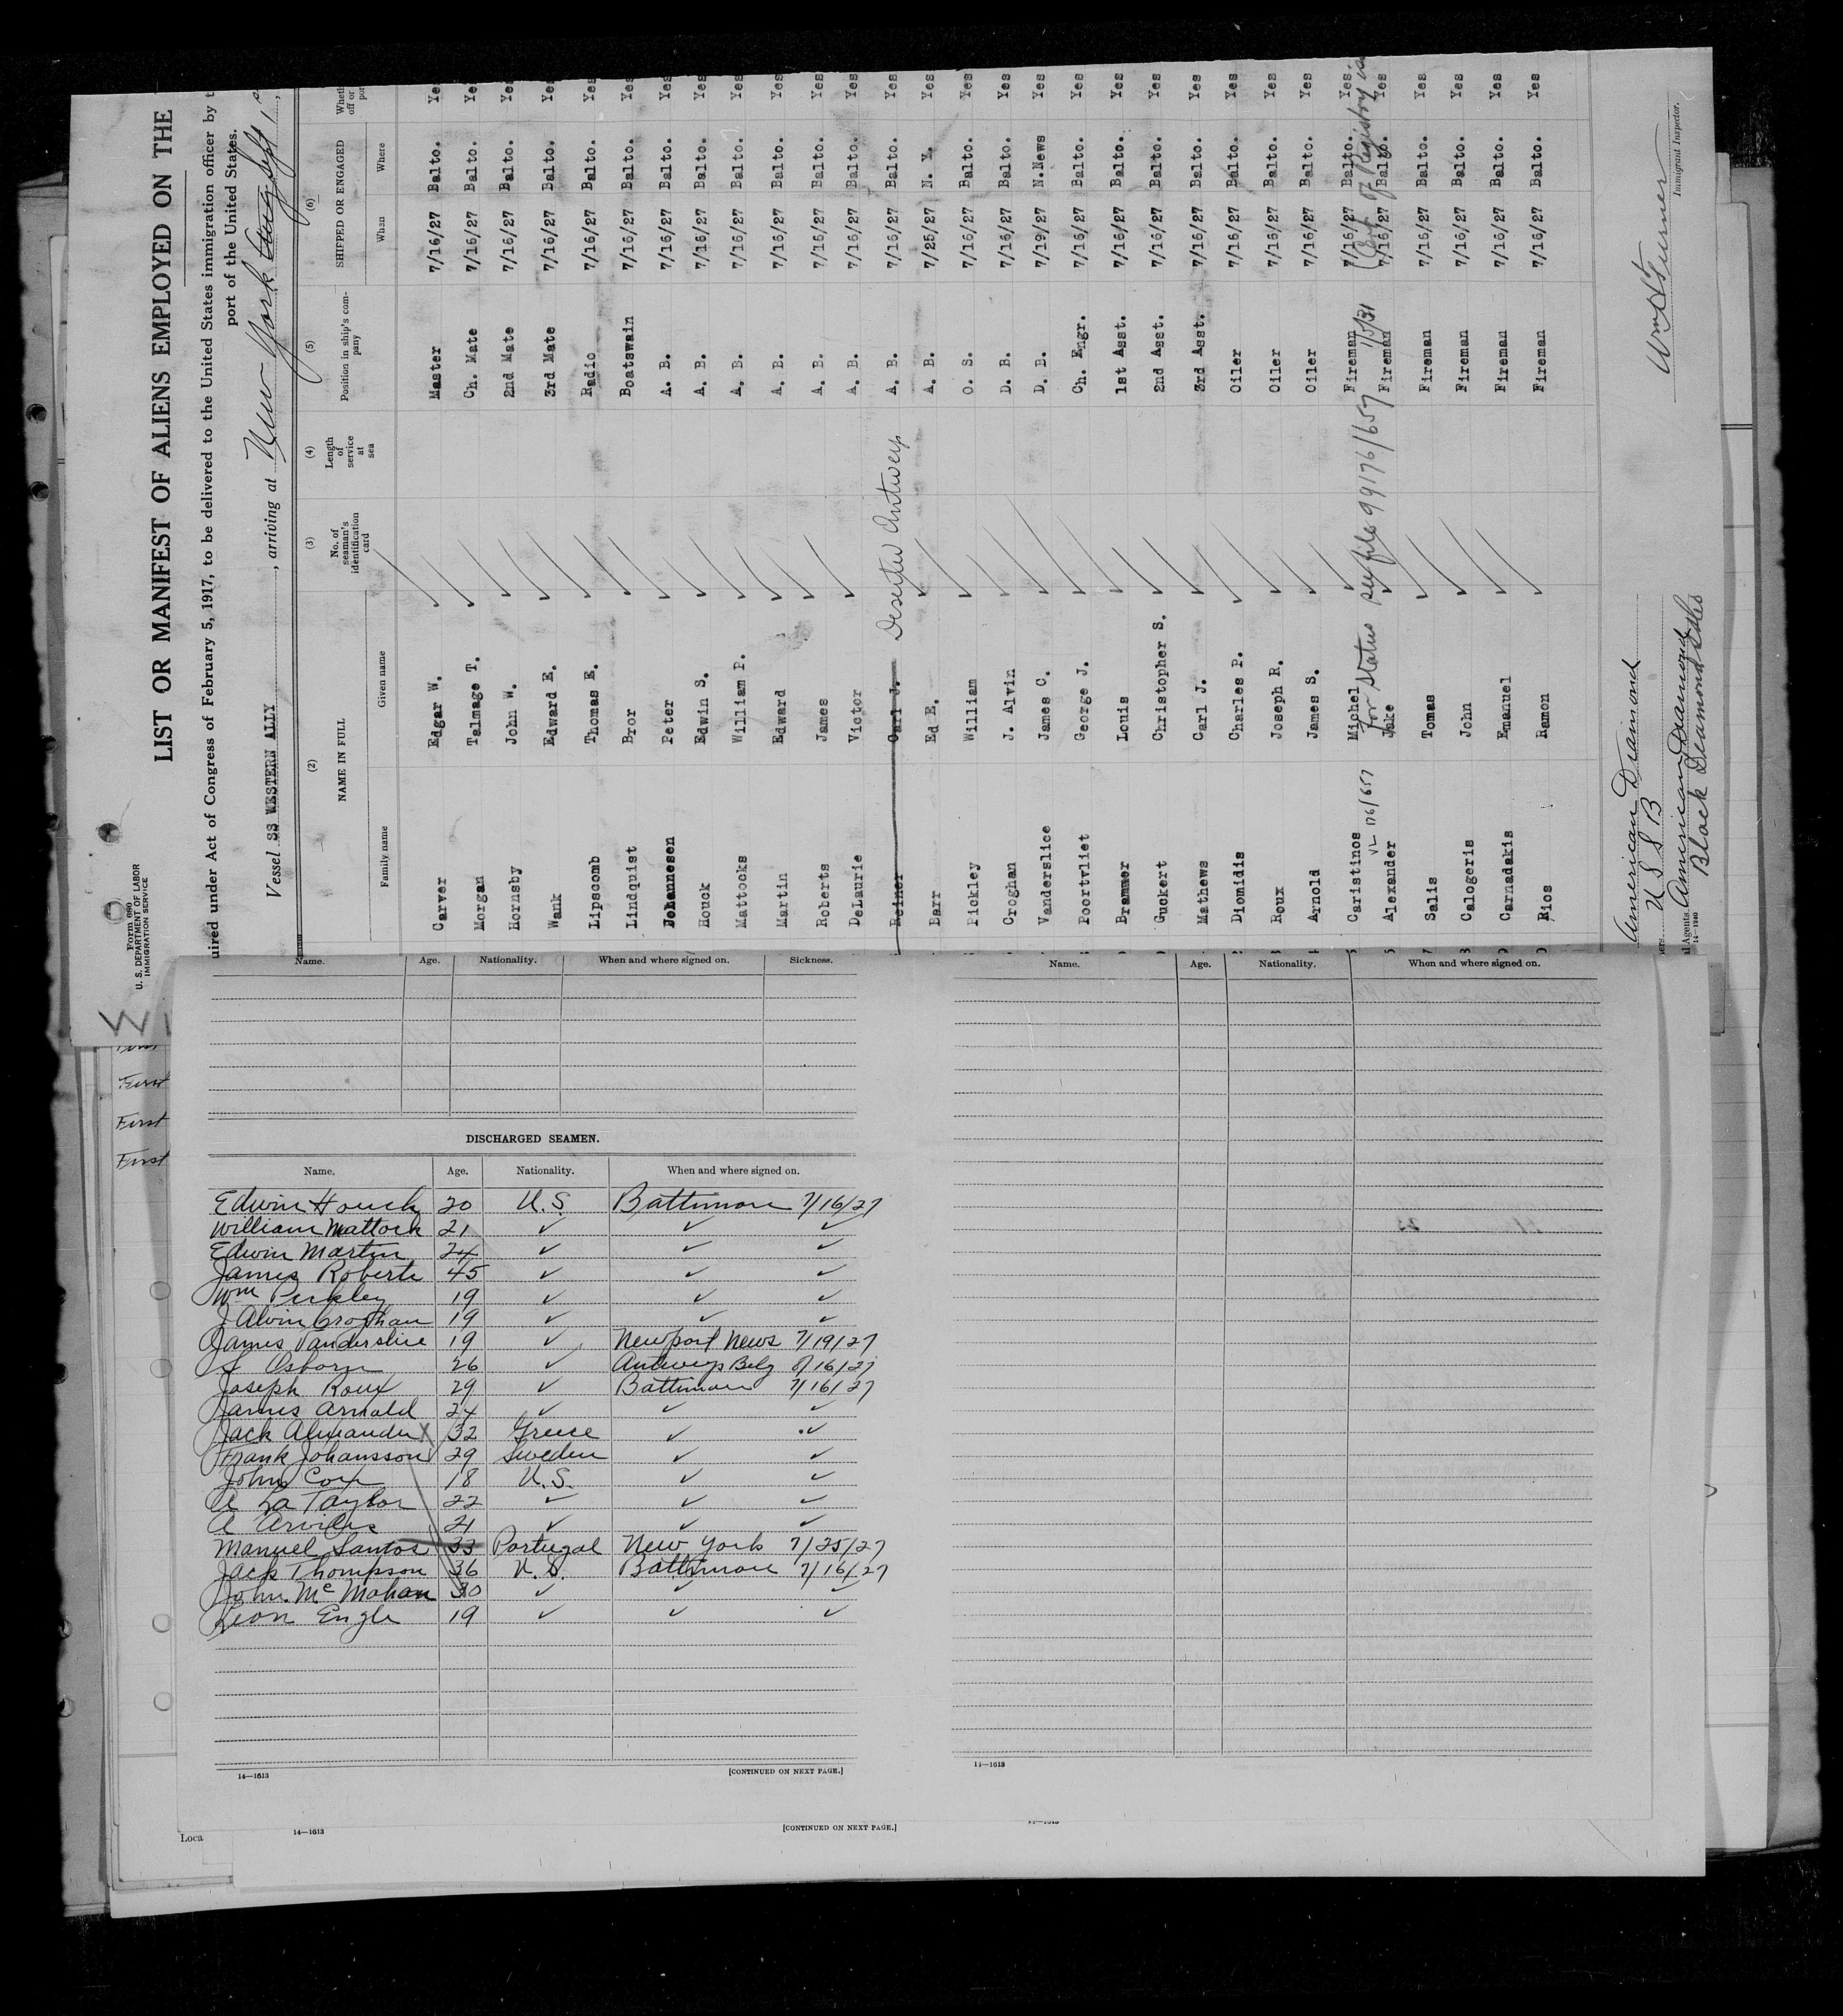 Form 680
U. S. DEPARTMENT OF LABOR
IMMIGRATION SERVICE
LIST OR MANIFEST OF ALIENS EMPLOYED ON THE
uired under Act of Congress of February 5, 1917, to be delivered to the United States immigration officer by t
port of the United States.
Vessel SS WESTERN ALLY, arriving at New York Sept 1,
(2) (3) (4) (5) (6)
NAME IN FULL No. of seaman's identification card Length of service at sea Position in ship's company SHIPPED OR ENGAGED Wheth off or por
Family name Given name When Where
Carver Edgar W. ✓ Master 7/16/27 Balto. Yes
Morgan Talmage T. ✓ Ch. Mate 7/16/27 Balto. Yes
Hornsby John W. ✓ 2nd Mate 7/16/27 Balto. Yes
Wank Edward E. ✓ 3rd Mate 7/16/27 Balto. Yes
Lipscomb Thomas E. ✓ Radio 7/16/27 Balto. Yes
Lindquist Bror ✓ Boatswain 7/16/27 Balto. Yes
Johannesen Peter ✓ A. B. 7/16/27 Balto. Yes
Houck Edwin S. ✓ A. B. 7/16/27 Balto. Yes
Mattocks William P. ✓ A. B. 7/16/27 Balto. Yes
Martin Edward ✓ A. B. 7/16/27 Balto. Yes
Roberts James ✓ A. B. 7/16/27 Balto. Yes
DeLaurie Victor ✓ A. B. 7/16/27 Balto. Yes
Reiner Carl J. Deserted Antwerp A. B. 7/16/27 Balto. Yes
Barr Ed E. ✓ A. B. 7/25/27 N. Y. Yes
Pickley William ✓ O. S. 7/16/27 Balto. Yes
Croghan J. Alvin ✓ D. B. 7/16/27 Balto. Yes
Vanderslice James C. ✓ D. B. 7/19/27 N.News Yes
Poortvliet George J. ✓ Ch. Engr. 7/16/27 Balto. Yes
Brammer Louis ✓ 1st Asst. 7/16/27 Balto. Yes
Guckert Christopher S. ✓ 2nd Asst. 7/16/27 Balto. Yes
Mathews Carl J. ✓ 3rd Asst. 7/16/27 Balto. Yes
Diomidis Charles P. ✓ Oiler 7/16/27 Balto. Yes
Roux Joseph R. ✓ Oiler 7/16/27 Balto. Yes
Arnold James S. ✓ Oiler 7/16/27 Balto. Yes
Caristinos Michel ✓ Fireman 7/16/27 Balto. Yes.
VL 176/657 for status see file 99176/657 1/5/31 (Cert of Registry is
Alexander Jake ✓ Fireman 7/16/27 Balto. Yes
Salis Tomas ✓ Fireman 7/16/27 Balto. Yes
Calogeris John ✓ Fireman 7/16/27 Balto. Yes
Carnadakis Emanuel ✓ Fireman 7/16/27 Balto. Yes
Rios Ramon ✓ Fireman 7/16/27 Balto. Yes
American Diamond
U S S B
l Agents. American Diamond
Black Diamond
14—1240
Wm H Turner
Immigrant Inspector.
First
First
First
Name. Age. Nationality. When and where signed on. Sickness.
DISCHARGED SEAMEN.
Name. Age. Nationality. When and where signed on.
Edwin Houck 20 U.S. Baltimore 7/16/27
William Mattock 21 ✓ ✓ ✓
Edwin Martin 24 ✓ ✓ ✓
James Roberts 45 ✓ ✓ ✓
Wm Perkley 19 ✓ ✓ ✓
J Alvin Croghan 19 ✓ ✓ ✓
James Vanderslice 19 ✓ Newport News 7/19/27
Osborn 26 ✓ Antwerp Belg 8/16/27
Joseph Roux 29 ✓ Baltimore 7/16/27
James Arnold 24 ✓ ✓ ✓
Jack Alexander X 32 Greece ✓ ✓
Frank Johansson 29 Sweden ✓ ✓
John Cox 18 U.S. ✓ ✓
A La Taylor 22 ✓ ✓ ✓
A 21 ✓ ✓ ✓
Manuel Santos 33 Portugal New York 7/25/27
Jack Thompson 36 U.S. Baltimore 7/16/27
John McMahan 30 ✓ ✓ ✓
Leon Engle 19 ✓ ✓ ✓
14—1613 [CONTINUED ON NEXT PAGE.]
Name. Age. Nationality. When and where signed on.
14—1613
Loca
14—1613 [CONTINUED ON NEXT PAGE.]